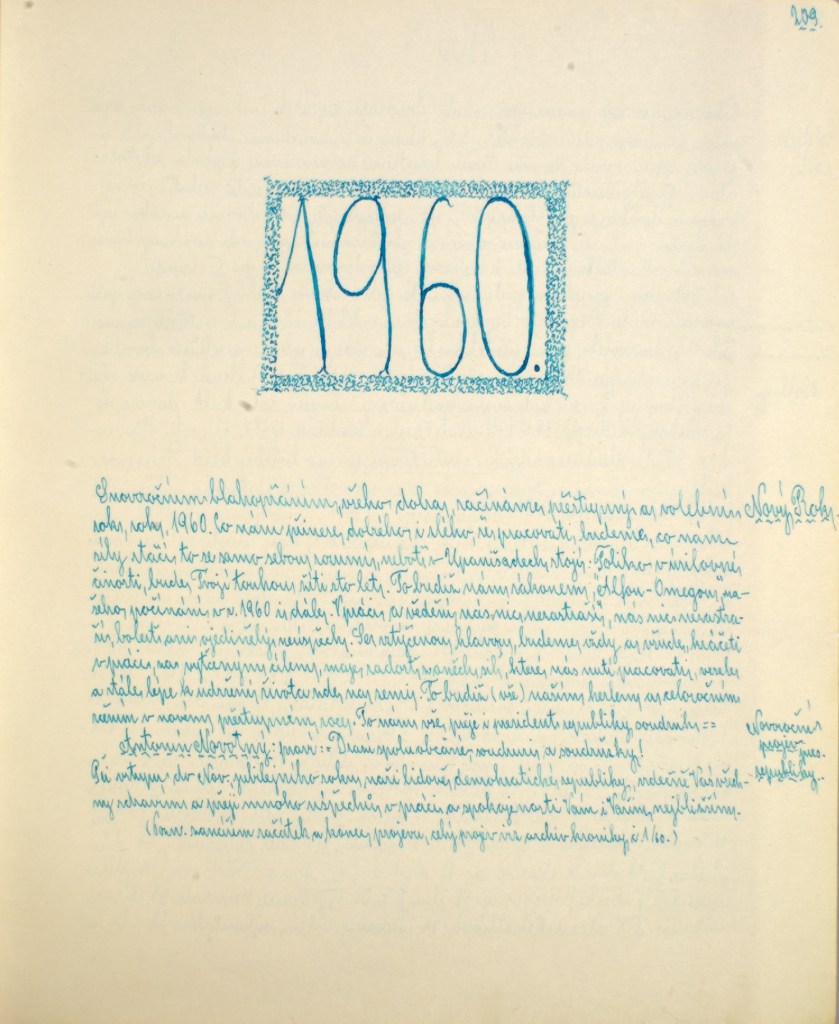 209.
1960.
S novoročním blahopřáním všeho dobra, začínáme přestupný a volební Nový Rok.
rok, roku 1960. Co nám přinese, dobrého i zlého, též pracovati budeme, co nám
síly stačí to se samo sebou rozumí, neboť v Upanišadech stojí: Toliko v úsilovné
činosti, budiž Tvojí touhou žíti sto let. To budiž nám zákonem, "Alfou-Omegou" na-
šeho počínání v r. 1960 i dále. V práci a vědění nás nic nezastraší, nás nic nezastra-
ší, bolesti ani ojedinělý neúspěch. Se vztýčenou hlavou, budeme vždy a všude, kráčeti
v práci, za vytčenými cílem, maje radost a vnědy sil, které nás nutí pracovati, vesele
a stále lépe k udržení života zde na zemi. To budiž (vše) našim heslem a celoročním
účním v novém přestupném roce. To nám vše, přeje i president republiky, soudruh :=
Antonín Novotný: praví:= Drazí spoluobčané, soudruzi a soudružky!
Novoroční
projev pres.
republiky.
Při vstupu do Nov. jubilejního roku naší lidově demokratické republiky, srdečně Vás všech-
ny zdravím a přeji mnoho úspěchů v práci a spokojenosti Vám i Vašim nejbližším.
(Pozn. začátek a konec projevu, celý projev viz archiv kroniky, č. 1/60.)